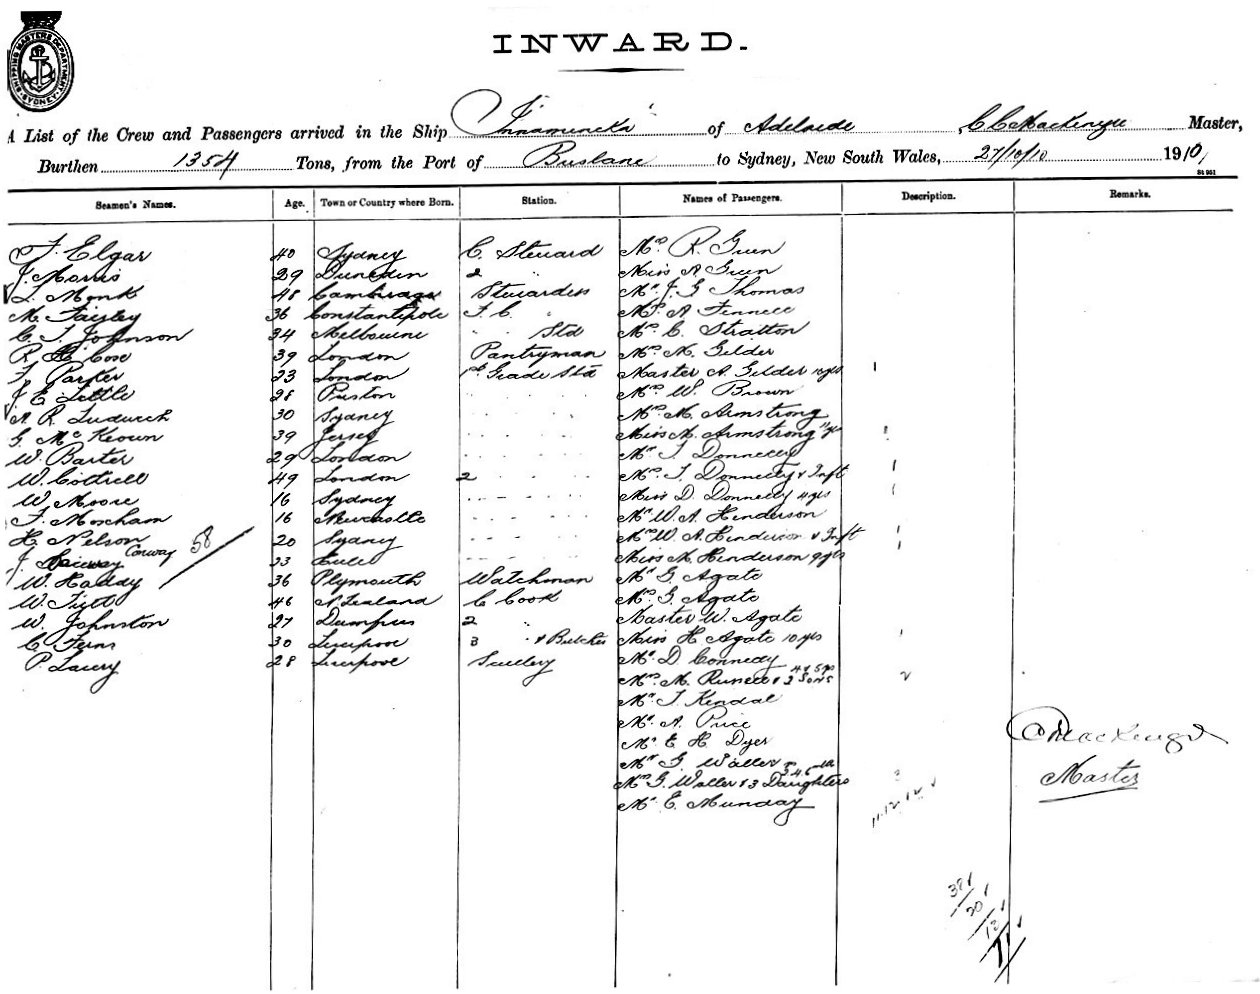 SHIPPING MASTERS DEPARTMENT SYDNEY
INWARD.
A List of the Crew and Passengers arrived in the Ship "Innamincka" of Adelaide C C MacKenzie Master,
Burthen 1354 Tons, from the Port of Brisbane to Sydney, New South Wales, 27/10/10 1910
St 951
Seamen's Names. Age. Town or Country where Born. Station. Names of Passengers. Description. Remarks.
F. Elgar 40 Sydney C. Steward Mrs R. Green
J. Morris 29 Dunedin 2 " Miss A Green
L. Monk 48 Stewardess Mr J. G Thomas
M. 36 F. C. " A Fennell
C. J. Johnson 34 Melbourne Std Mrs C. Stratton
R. H. Cose 39 London Pantryman Mrs M. Gelder
F. Parker 23 London 1st Grade Std Master A. Gelder 1
J E Little 28 Preston Mrs W. Brown
A. R. 30 Sydney Mrs M. Armstrong
G. McKeown 39 Jersey Miss M. Armstrong
W. Barter 29 London Mr T. Donnelly
W. Cottrell 49 London 2 Mrs T. Donnelly & Inft 1
W. Moore 16 Sydney Miss D. Donnelly 4 yrs
F. Moxham 16 Newcastle Mr W. A. Henderson
H. Nelson 58 20 Sydney Mrs W. A Henderson & Inft
J. Conway 33 Miss M. Henderson 9 yrs
W. Hadday 36 Plymouth Watchman Mr G Agate
W. 46 N Zealand C Cook Mrs G. Agate
W. Johnston 27 2 " Master W. Agate
C. Ferns 30 Liverpool 3 " & Butcher Miss H Agate 10 yrs
P. Lavery 28 Liverpool Scullery Mr D Connedy
Mrs M. Russell & 2 Sons 4 & 5 yrs 2
Mr T. Kendal
Mr A. Price
Mr E H Dyer
Mr G. Waller
Mrs G. Waller & 3 Daughters 3
Mr E. Munday
C C MacKenzie
Master
38
20
13
71